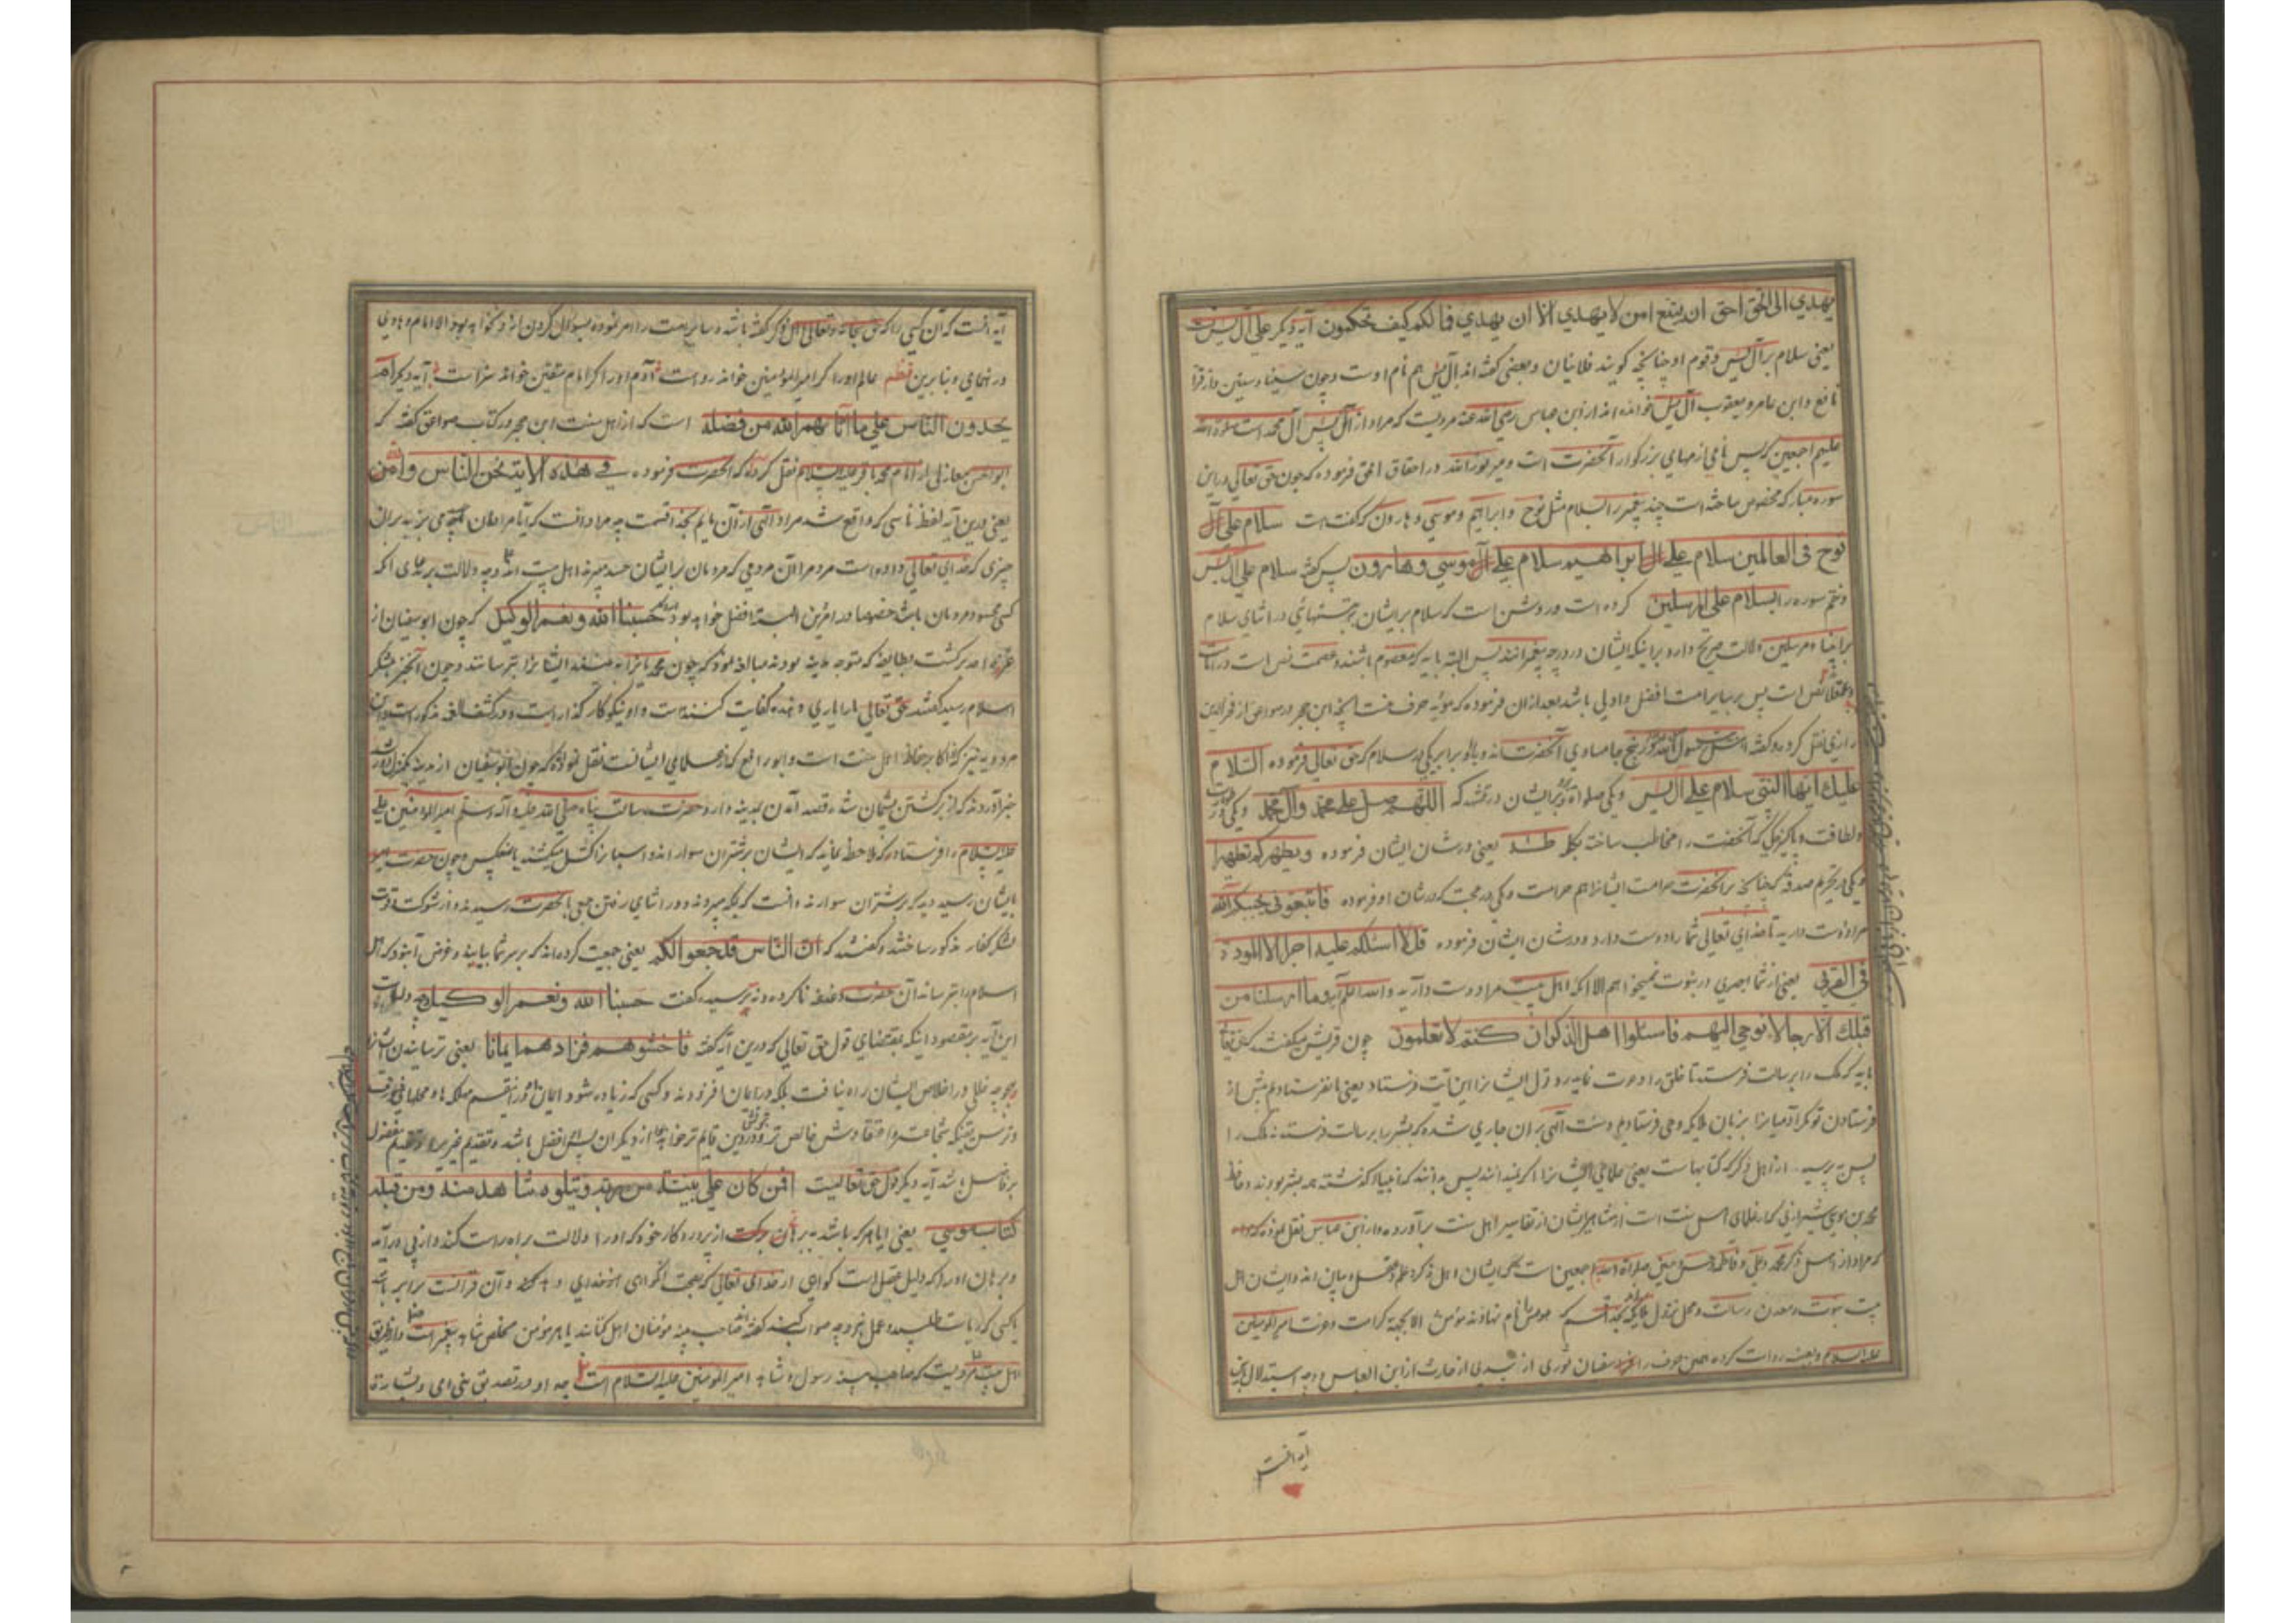 یهدي الی الحق احق ان یتبع امن لا یهدي الا ان یهدي فما لکم کیف تحکمون آیه دیکر علی آل یس
یعنی سلام بر آل یس و قوم او چنانچه کویند فلانیان و بعضی کفته اند آل یس هم نام اوست و چون سینا و سینین و از قرا
نافع و ابن عامر و یعقوب آل یس خوانده اند از ابن عباس رضی الله عنه مرویست که مراد از آل یس آل محمد است صلوة الله
علیهم اجمعین که یس نامی از نامهای بزرکوار آنحضرت است و میر نورالله در احقاق الحق فرموده که چون حق تعالی در این
سوره مبارکه مخصوص ساخته است چند پیغمبر را بسلام مثل نوح و ابراهیم و موسی و هارون که کفته است سلام علی آل
نوح فی العالمین سلام علی آل ابراهیم سلام علی آل موسی و هارون پس کفته سلام علی آل یس
و ختم سوره را بسلام علی المرسلین کرده است و روشن است که سلام بر ایشان به تنهائی در اثنای سلام
بر انبیا و مرسلین دلالت صریح دارد بر اینکه ایشان در درجه پیغمبرانند پس البته باید که معصوم باشند و عصمت نص است در امامت
نص است پس بر سایر امت افضل و اولی باشد بعد از ان فرموده که مؤید حرف منست آنچه ابن حجر در صواعق از فخرالدین
رازی نقل کرده و کفته اهل بیت رسول الله در پنج جا مساوی آنحضرت اند و با او برابر یکی در سلام که حق تعالی فرموده السلام
علیک ایها النبی سلام علی آل یس و یکی صلواة بر ایشان در تشهد که اللهم صل علی محمد و آل محمد و یکی در
لطافت و پاکیزکی که آنحضرت را مخاطب ساخته بکلمه طه یعنی در شان ایشان فرموده و یطهرکم تطهیرا
و یکی در تحریم صدقه که چنانچه بر آنحضرت حرامست ایشانرا هم حرامست و یکی در محبت که در شان او فرموده فاتبعونی یحببکم الله
مرا دوست دارید تا خدای تعالی شما را دوست دارد و در شان ایشان فرموده قل لا اسئلکم علیه اجرا الا المودة
فی القربی یعنی از شما اجری در نبوت نمیخواهم الا آنکه اهل بیت مرا دوست دارید والله اعلم آیه و ما ارسلنا من
قبلک الا رجالا نوحی الیهم فاسئلوا اهل الذکر ان کنتم لا تعلمون چون قریش میکفتند که حق تعالی
باید که ملک را برسالت فرستد تا خلق را دعوت نماید رد قول ایشانرا این آیت فرستاد یعنی ما نفرستادیم پیش از
فرستادن تو مکر آدمیانرا بزبان ملایکه وحی فرستادیم و سنت الهی بران جاری شده که بشر را برسالت فرستد نه ملک را
پس بپرسید از اهل ذکر که کتابهاست یعنی علمای ایشانرا اکر نمیدانند پس بدانند که انبیاء کذشته همه بشر بودند و حافظ
محمد بن موسی شیرازی که از علمای اهل سنت است از مشاهیر ایشان از تفاسیر اهل سنت برآورده و از ابن عباس نقل نموده که
که مراد از اهل ذکر محمد و علی و فاطمه و حسن و حسین صلواة الله اجمعین است که ایشان اهل ذکر و علم و عقل و بیان اند و ایشان اهل
بیت نبوت و معدن رسالت و محل نزول ملایکه بخدا قسم که مومن را نام نهاده نه مؤمن الا بجهة کرامت و حضرت امیرالمومنین
علیه السلام و بعضی روایت کرده همین حرف را از سفیان ثوری از سدی از حارث از ابن العباس وجه استدلال باین
آیه آنست
آیه آنست که آن کسی را که حق سبحانه و تعالی اهل ذکر کفته باشد و سایر امت را امر نموده بسؤال کردن از او نخواهد بود الا امام و هادی
در رهنمائی و بنابرین نظم عالم اورا اکر امیرالمؤمنین خوانند رواست آدم اورا اکر امام متقین خواند سزاست آیه دیکر ام
یحسدون الناس علی ما آتاهم الله من فضله است که از اهل سنت ابن حجر در کتاب صواعق کفته که
ابوالحسن مغازلی از امام محمد باقر علیه السلام نقل کرده که آنحضرت فرموده فی هذه الایة نحن الناس والله
یعنی درین آیه لفظ ناسی که واقع شد مراد الهی از آن مائیم بخدا قسمت چه مراد آنست که آیا مردمان حسد می برند بران
چیزی که خدای تعالی داده است مردم را آن مردمی که مردمان بر ایشان حسد میبرند اهل بیت اند وجه دلالت بر مدعی آنکه
کسی محسود مردمان باشد خصوصا در امر دین البته افضل خواهد بود حسبنا الله و نعم الوکیل که چون ابوسفیان از
غزوه احد برکشت بطایفه که متوجه مدینه بودند مبالغه نمود که چون محمد یا نرا به بینند ایشانرا بترسانند و چون آنخبر بلشکر
اسلام رسید کفتند حق تعالی ما را یاری دهنده کفایت کننده است و او نیکوکار کذار است و در کشف الغمه مذکور است و ابن
مردویه نیز که از اکابر حفاظ اهل سنت است و ابو رافع که از علمای ایشانست نقل نموده که چون ابوسفیان از مدینه بمنزل
خبر آوردند که از برکشتن پشیمان شده قصد آمدن بمدینه دارد حضرت رسالت پناه صلی الله علیه و آله و سلم امیرالمؤمنین علی
علیه السلام را فرستادند که ملاحظه نماید که ایشان بر شتران سوار اند و اسبانرا کتل میکشند یا بعکس و چون حضرت امیر
بایشان رسید دید که بر شتران سوارند دانست که بمکه میروند و در اثنای رفتن جمعی بآنحضرت رسیدند و از شوکت و قوت
لشکر کفار مذکور ساختند و کفتند که ان الناس قد جمعوا لکم یعنی جمعیت کرده اند که بر سر شما بیایند و غرض آنبود که اهل
اسلام را بترساند آن حضرت دغدغه ناکرده و نه ترسیده کفت حسبنا الله و نعم الوکیل وجه دلالت
این آیه بر مقصود اینکه بمقتضای قول حق تعالی که درین آیه کفته فاخشوهم فزادهم ایمانا یعنی ترسانیدن ایشانرا
بهیچوجه خللی در اخلاص ایشان راه نیافت بلکه در ایمان افزودند و کسی که زیاده شود ایمان او در اینقسم مهلکه ها و محلهای
و ترس بیقینکه شجاعت و اعتقادش خالص تر و در دین قایم تر خواهد بود از دیکران پس افضل باشد و تقدیم غیر بر او تقدیم مفضول
بر فاضل باشد آیه دیکر قول حق تعالیست افمن کان علی بینة من ربه و یتلوه شاهد منه و من قبله
کتاب موسی یعنی ایا هر که باشد به برهان از پروردکار خود که اورا دلالت براه راست کند و از پی درآید
و برهان اورا که دلیل عقل است کواهی از خدای تعالی که بصحت آن کواهی میدهد و آن قرآنست برابر باشد
یا کسی که ریاست طلبیده و عمل نه بر وجه صواب کند کفته اند صاحب بینه مؤمنان اهل کتابند یا هر مؤمن مخلص شاهد پیغمبر است و از طریق
اهل بیت مرویست که صاحب بینه رسول و شاهد امیرالمؤمنین علیه السلام است چه او در تصدیق نبی امی و بشارة